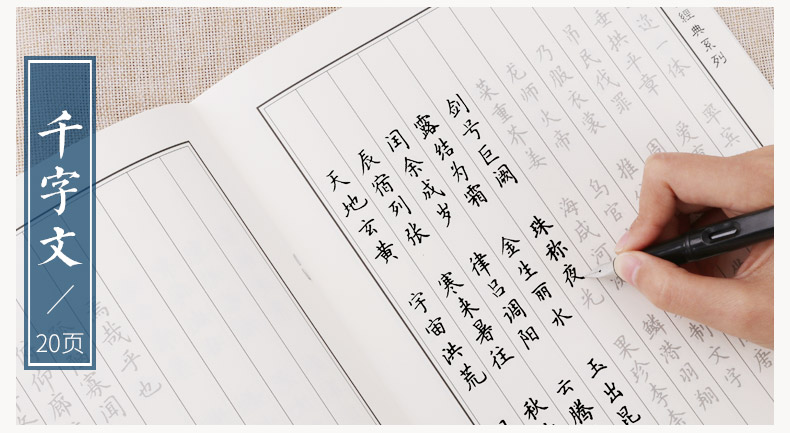 千字文
20页
經典系列
天地玄黄 宇宙洪荒
辰宿列张 寒来暑往 秋
闰余成岁 律吕调阳 云腾
露结为霜 金生丽水 玉出昆
剑号巨阙 珠称夜光 果珍李柰
菜重芥姜 海咸河 鳞潜羽翔
龙师火帝 鸟官 制文字
乃服衣裳 推 唐
吊民伐罪 周
垂拱平章 爱
迩一体 率宾
焉哉乎也
寡闻
廊
仰